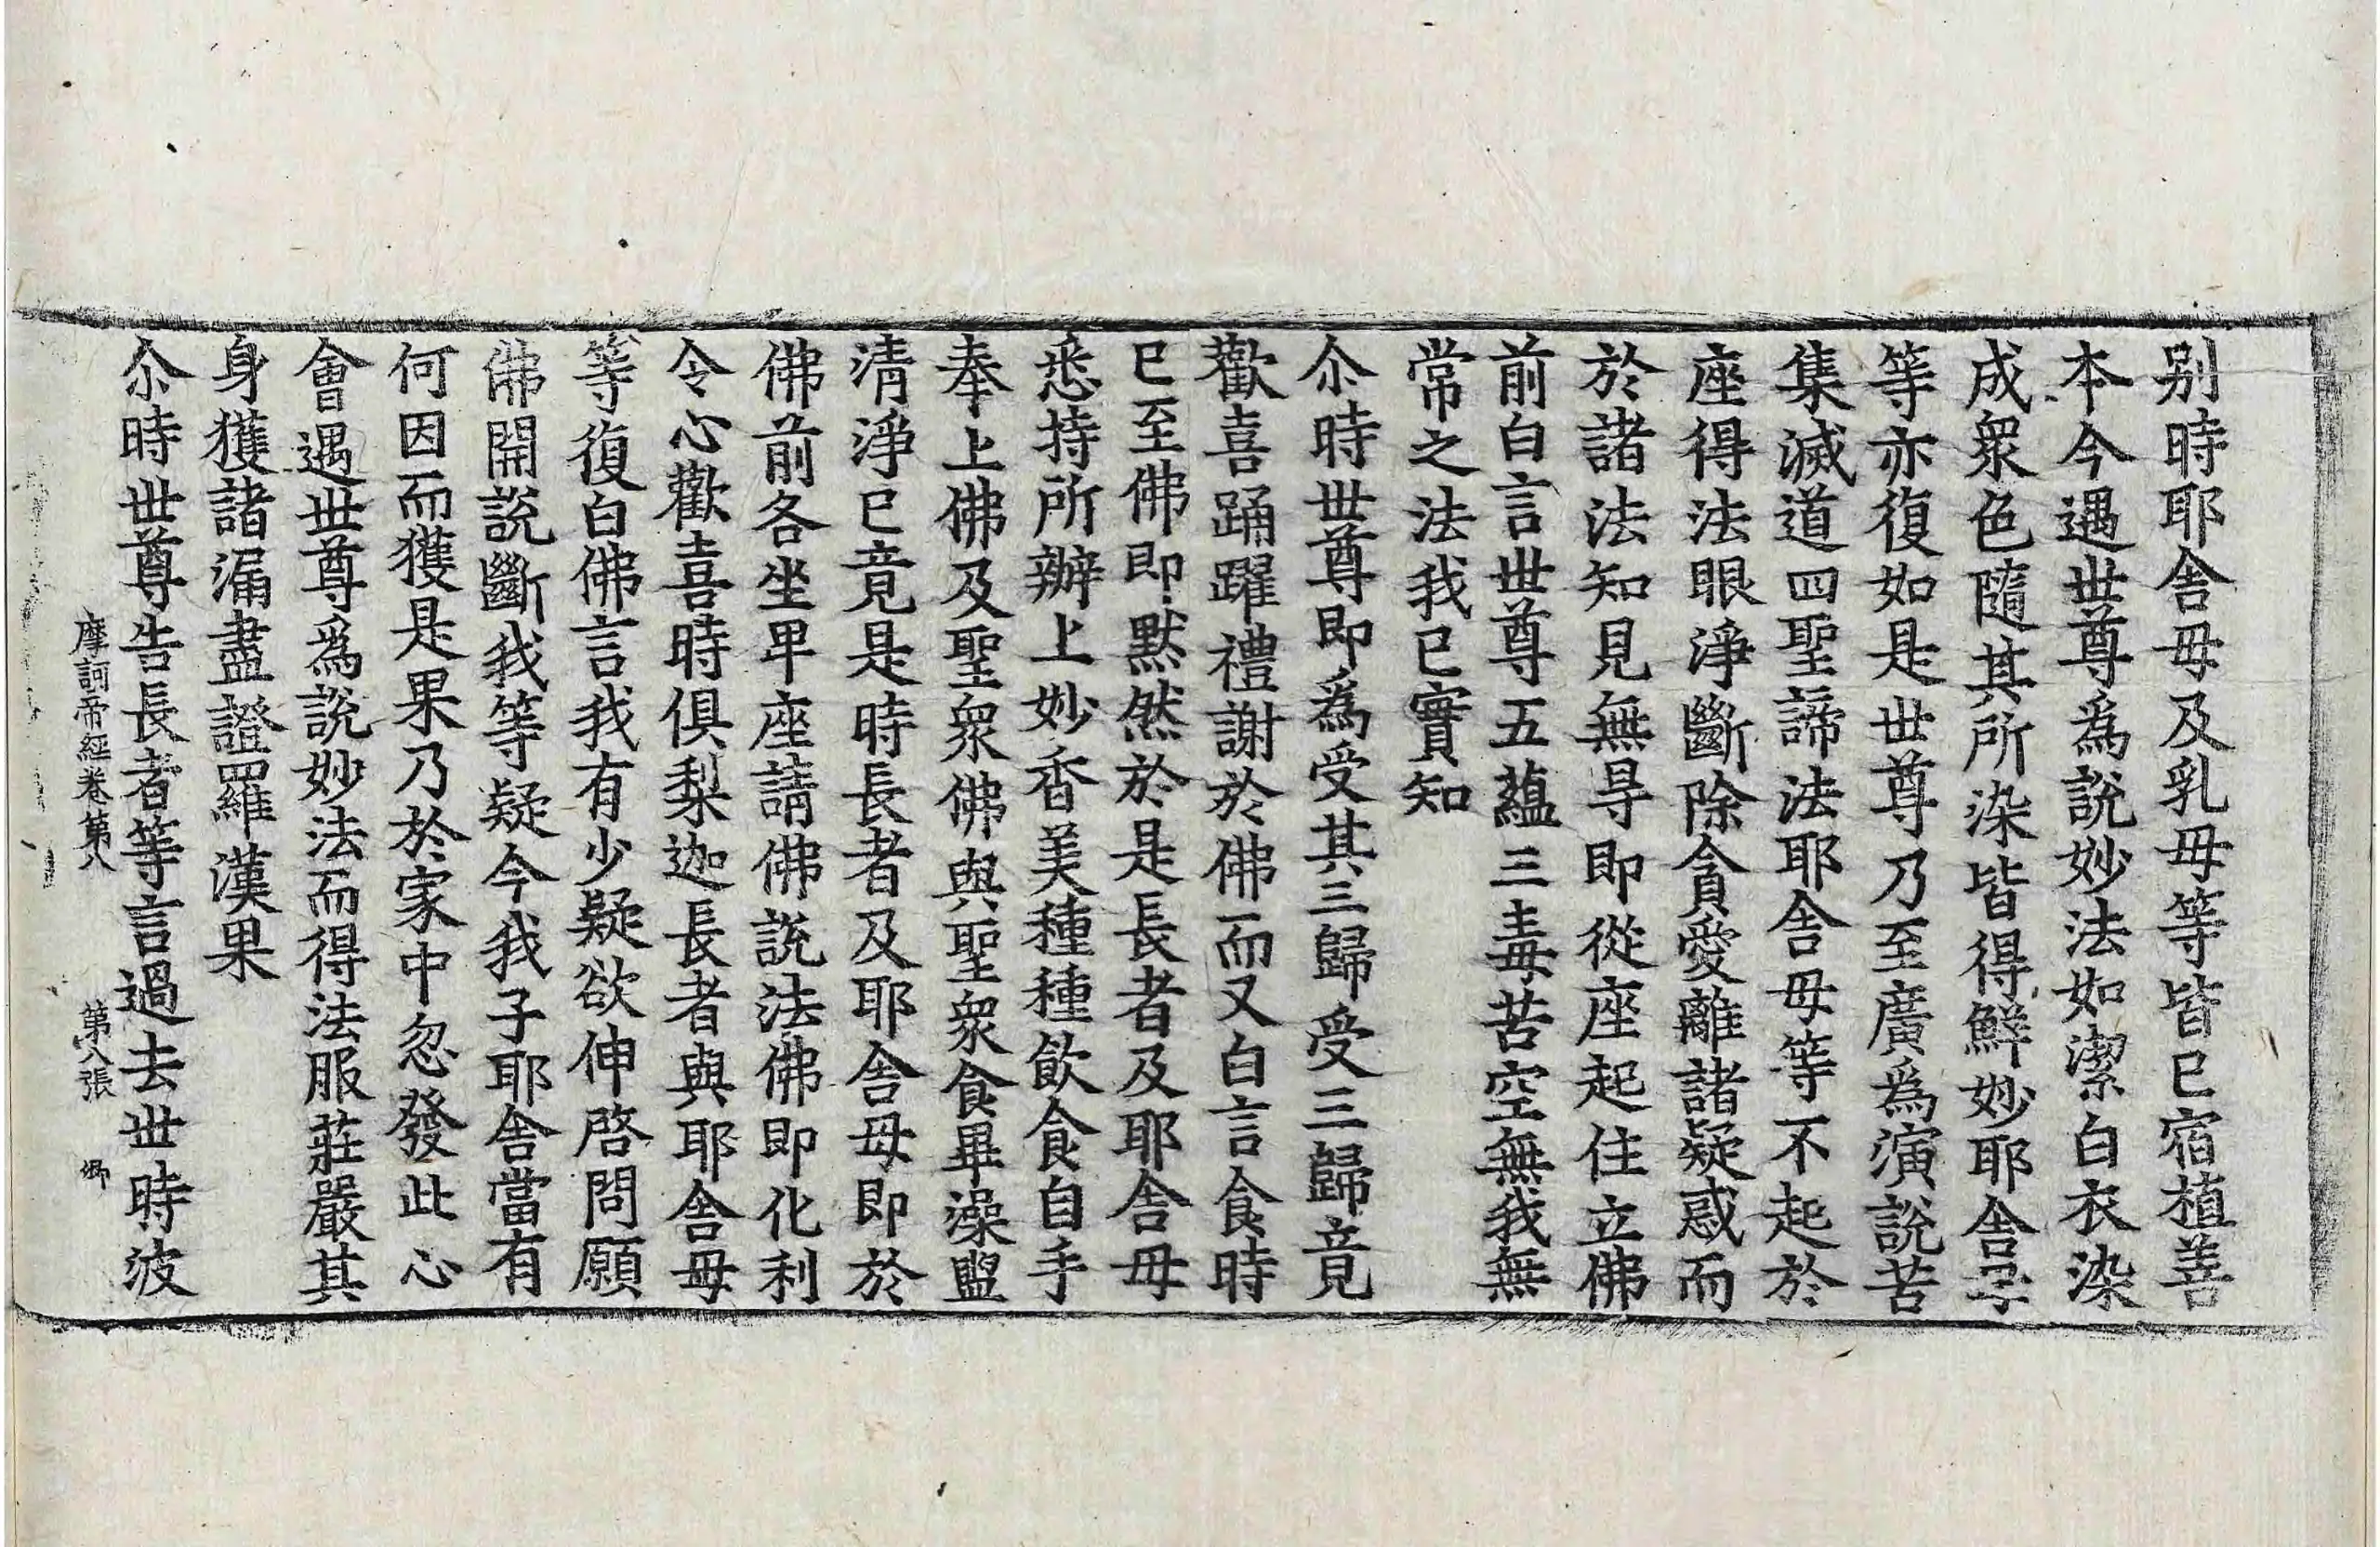 别時耶舎母及乳母等皆已宿植善
本今遇世尊爲說妙法如潔白衣染
成衆色隨其所染皆得鮮妙耶舎子
等亦復如是世尊乃至廣爲演說苦
集滅道四聖諦法耶舎母等不起於
座得法眼淨斷除貪愛離諸疑惑而
於諸法知見無㝵即從座起住立佛
前白言世尊五蘊三毒苦空無我無
常之法我已實知
尒時世尊即爲受其三歸受三歸竟
歡喜踊躍禮謝於佛而又白言食時
已至佛即黙然於是長者及耶舎母
悉持所辦上妙香美種種飲食自手
奉上佛及聖衆佛與聖衆食畢澡盥
清淨已竟是時長者及耶舎母即於
佛前各坐卑座請佛說法佛即化利
令心歡喜時俱梨迦長者與耶舎母
等復白佛言我有少疑欲伸啓問願
佛開說斷我等疑今我子耶舎當有
何因而獲是果乃於家中忽發此心
會遇世尊爲說妙法而得法服莊嚴其
身獲諸漏盡證羅漢果
尒時世尊告長者等言過去世時波
摩訶帝經卷第八 第八張 鄉